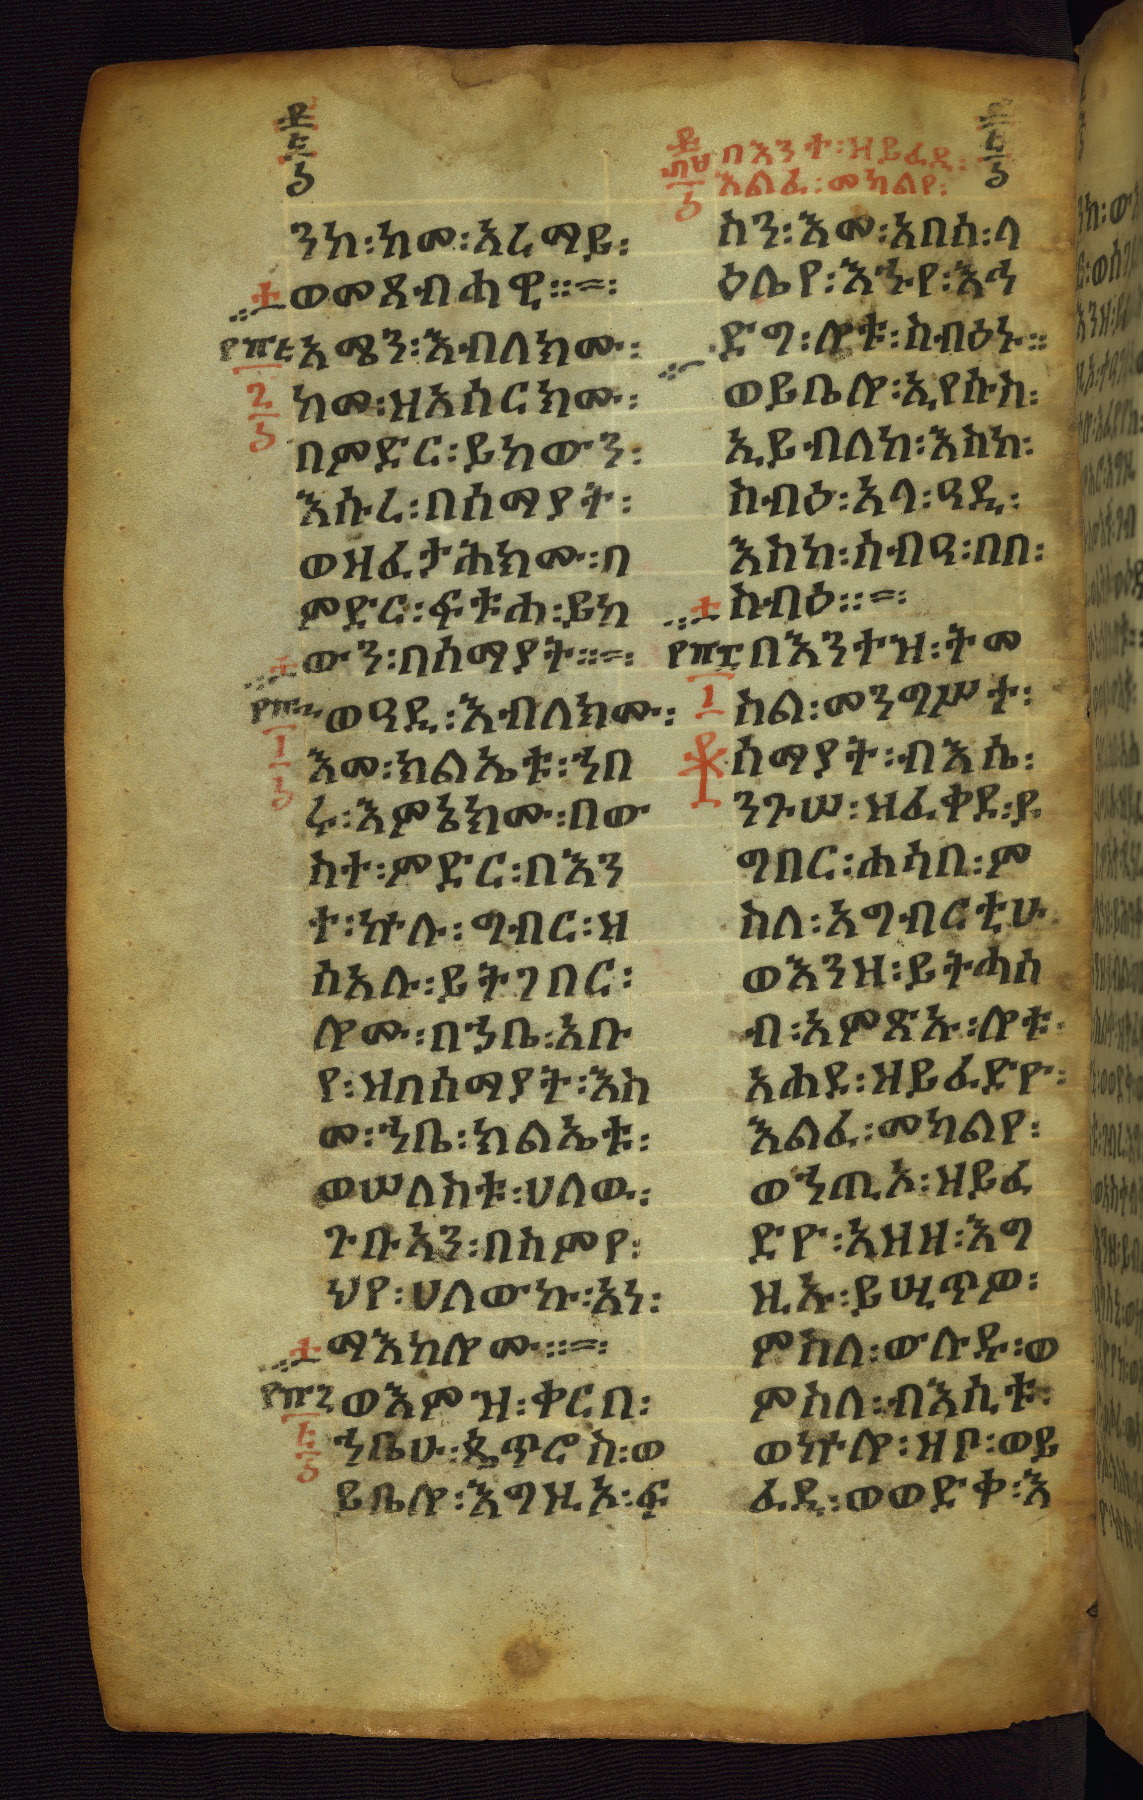 በእንተ፡ዝይፈዲ፡
እልፈ፡መካልየ፡
ንከ፡ከመ፡አረማይ፡
ወመጸብሓዊ፡፡=፡
አሜን፡እብለክሙ፡
ከመ፡ዝአሰርክሙ፡
በምድር፡ይከውን፡
እሱረ፡በሰማያት፡
ወዝፈታሕክሙ፡በ
ምድር፡ፍቱሐ፡ይከ
ውን፡በሰማያት፡፡=፡
ወዓዲ፡እብለክሙ፡
እመ፡ክልኤቱ፡ኀበ
ሩ፡እምኔክሙ፡በው
ስተ፡ምድር፡በእን
ተ፡ኵሉ፡ግብር፡ዘ
ሰአሉ፡ይትገበር፡
ሎሙ፡በኀቤ፡አቡ
የ፡ዝበሰማያት፡እስ
መ፡ኀቤ፡ክልኤቱ፡
ወሠለስቱ፡ሀለዉ፡
ጉቡአን፡በስምየ፡
ህየ፡ሀለውኩ፡አነ፡
ማእከሎሙ፡፡=፡
ወእምዝ፡ቀርበ፡
ኀቤሁ፡ጴጥሮስ፡ወ
ይቤሎ፡እግዚኦ፡ፍ
ስን፡እመ፡አበሰ፡ላ
ዕሌየ፡እኁየ፡እኅ
ድግ፡ሎቱ፡ስብዕኑ፡፡
ወይቤሎ፡ኢየሱስ፡
ኢይብለከ፡እስከ፡
ስብዕ፡አላ፡ዓዲ፡
እስከ፡ስብዓ፡በበ፡
ስብዕ፡፡=፡
በእንተዝ፡ትመ
ስል፡መንግሥት፡
ሰማያት፡ብእሴ፡
ንጉሠ፡ዝፈቀደ፡ያ
ግበር፡ሐሳበ፡ም
ስለ፡አግብርቲሁ
ወእንዘ፡ይትሓሰ
ብ፡አምጽኡ፡ሎቱ፡
አሐደ፡ዝይፈድዮ፡
እልፈ፡መካልየ፡
ወኀጢኦ፡ዝይፈ
ድዮ፡አዝዘ፡እግ
ዚኡ፡ይሢጥዎ፡
ምስለ፡ውሉዱ፡ወ
ምስለ፡ብእሲቱ፡
ወኵሎ፡ዝቦ፡ወይ
ፈዲ፡ወወድቀ፡እ